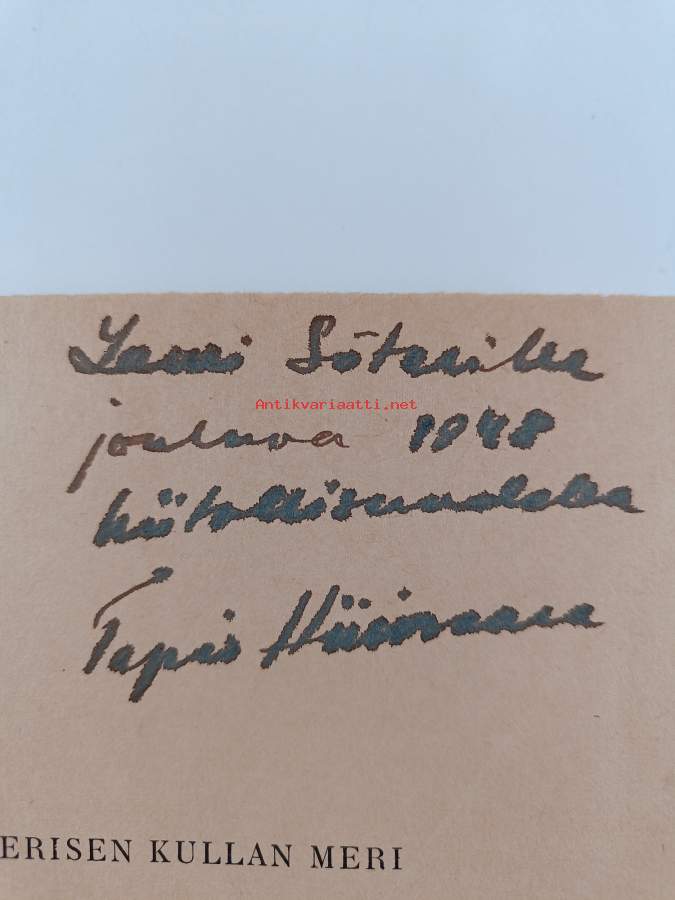 Lauri
Antikvariaatti.net
jouluna 1948
kiitollisuudella
Tapio Hiisivaara
ERISEN KULLAN MERI